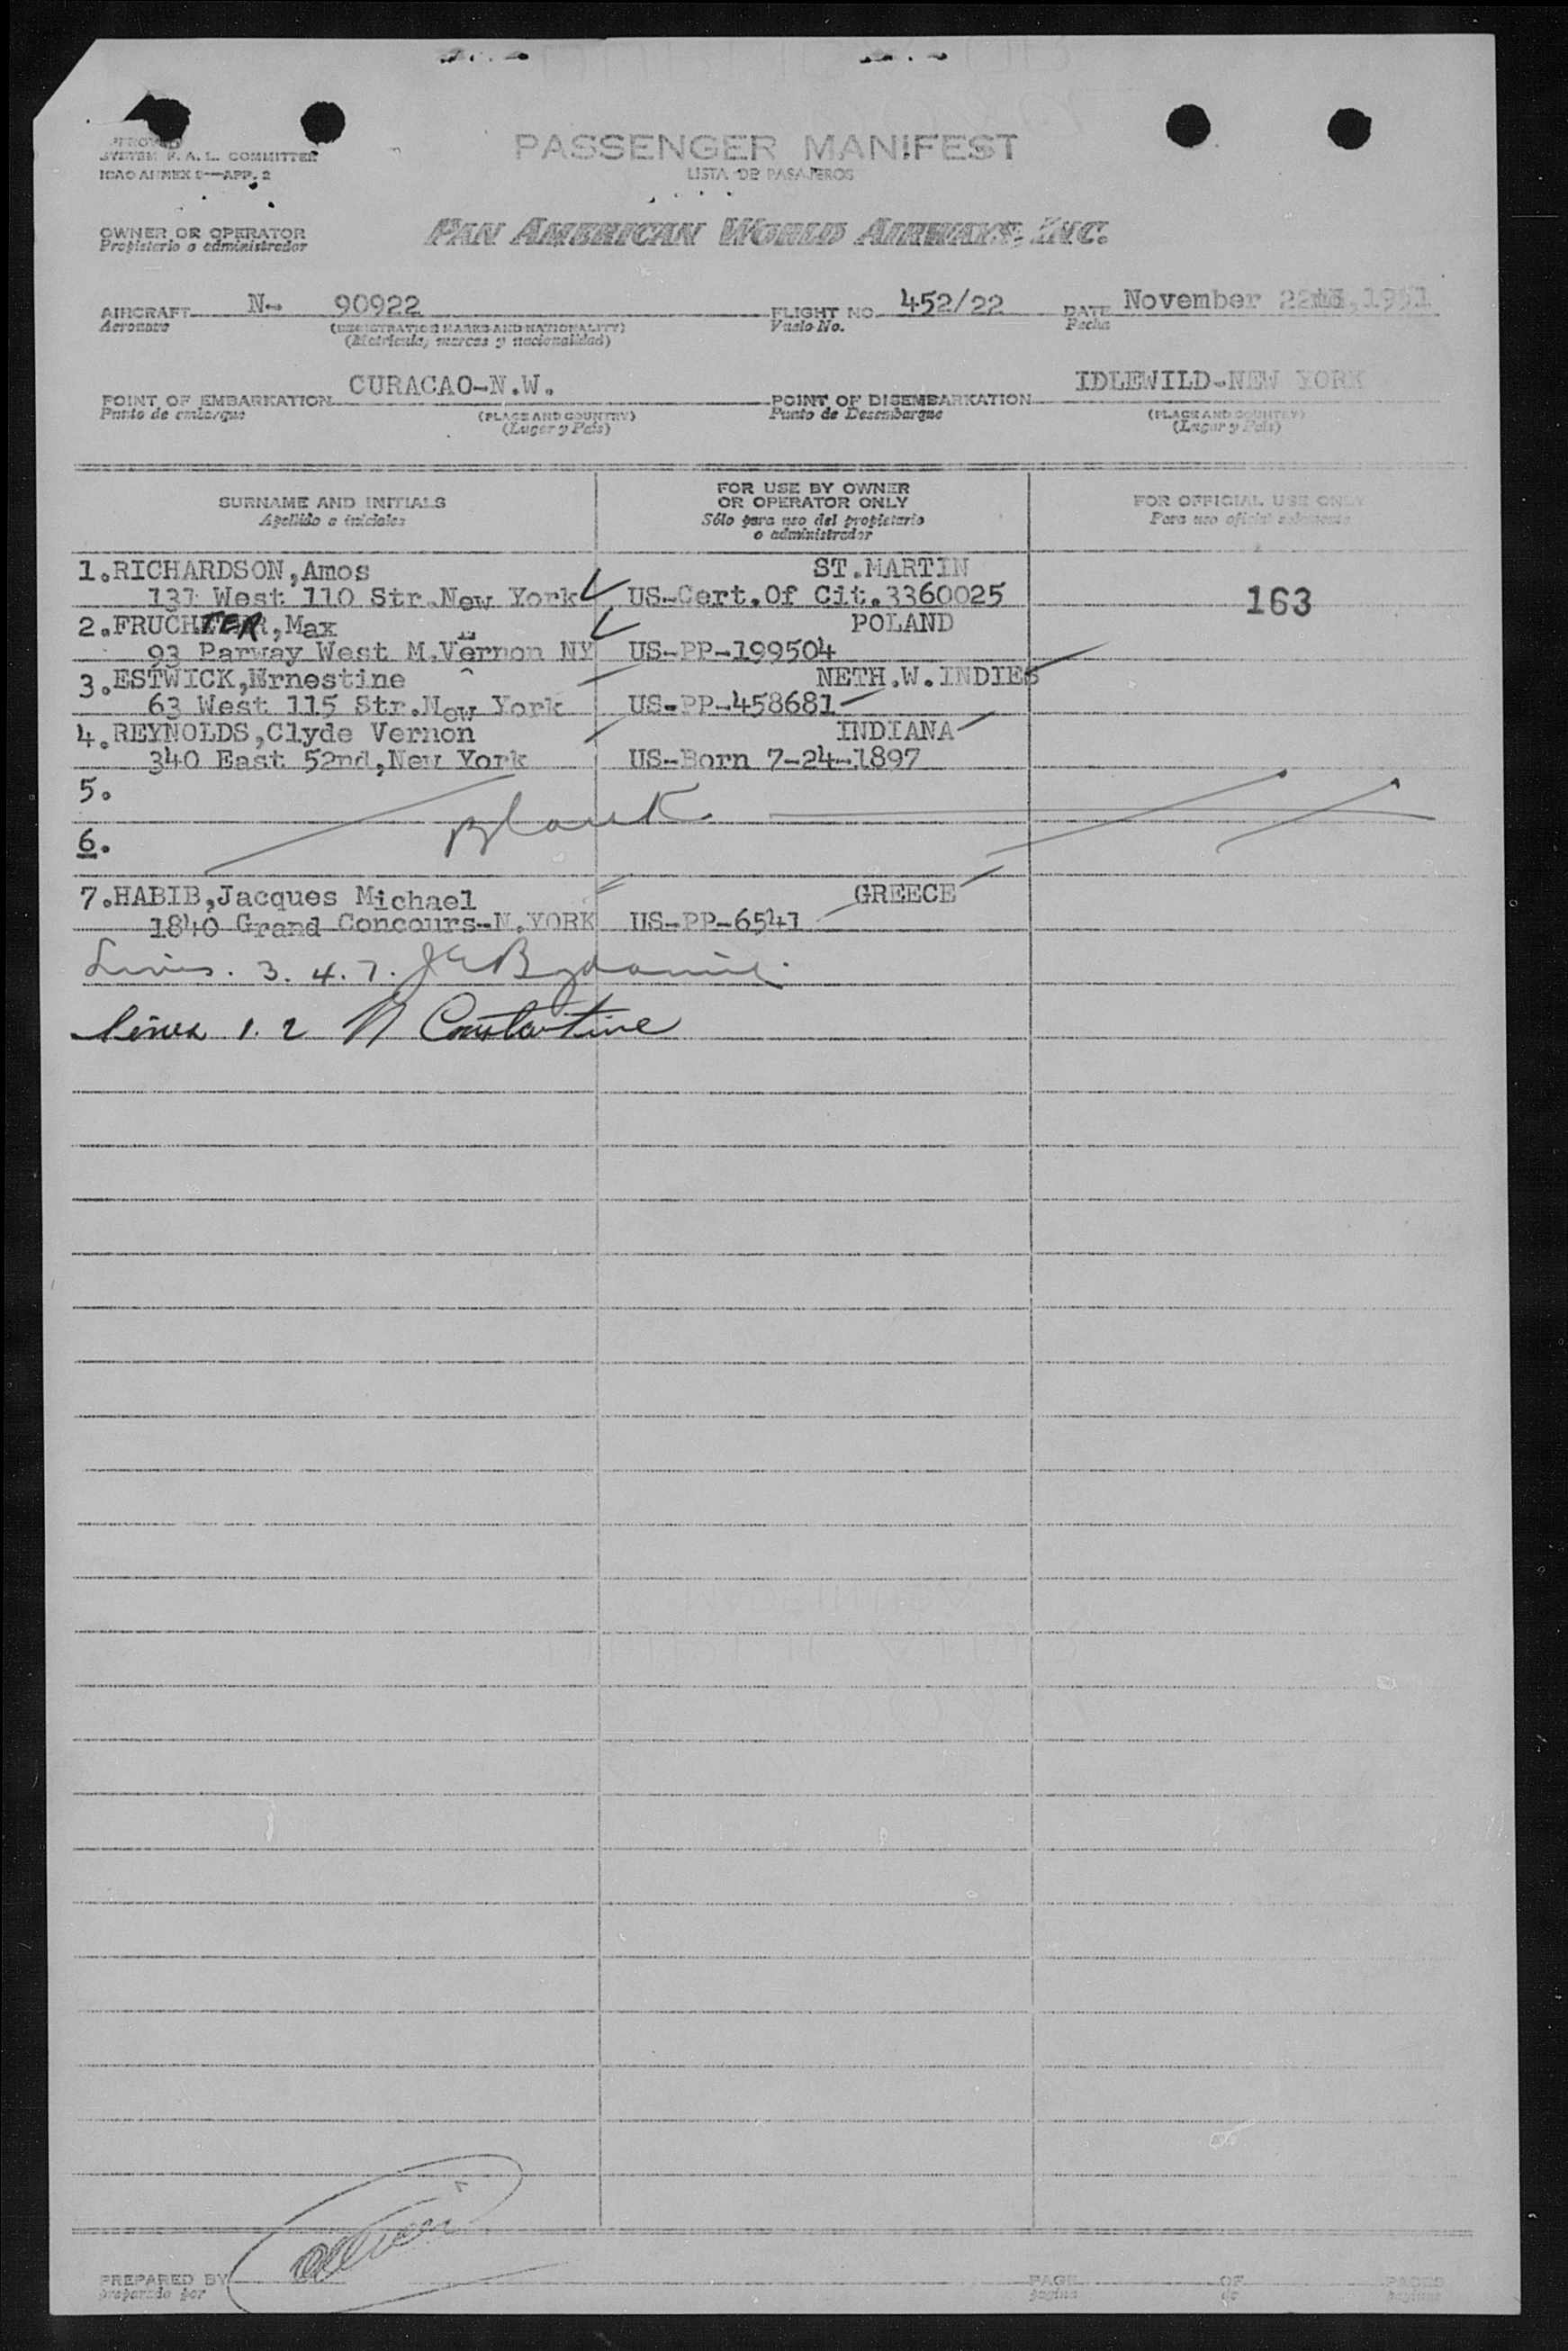 APPROVED
SYSTEM F. A. L. COMMITTEE
ICAO ANNEX 9—APP. 2
PASSENGER MANIFEST
LISTA DE PASAJEROS
OWNER OR OPERATOR
Propietario o administrador
PAN AMERICAN WORLD AIRWAYS, INC.
AIRCRAFT N- 90922 FLIGHT NO. 452/22 DATE November 22nd,1951
Aeronave (REGISTRATION MARKS AND NATIONALITY) Vuelo No. Fecha
(Matricula, marcas y nacionalidad)
POINT OF EMBARKATION CURACAO-N.W. POINT OF DISEMBARKATION IDLEWILD-NEW YORK
Punto de embarque (PLACE AND COUNTRY) Punto de Desembarque (PLACE AND COUNTRY)
(Lugar y Pais) (Lugar y Pais)
SURNAME AND INITIALS FOR USE BY OWNER OR OPERATOR ONLY FOR OFFICIAL USE ONLY
Apellido e iniciales Sólo para uso del propietario o administrador Para uso oficial solamente
1.RICHARDSON,Amos ST.MARTIN
131 West 110 Str.New York US-Cert.Of Cit.3360025 163
2.FRUCHTER,Max POLAND
93 Parway West M.Vernon NY US-PP-199504
3.ESTWICK,Ernestine NETH.W.INDIES
63 West 115 Str.New York US-PP-458681
4.REYNOLDS,Clyde Vernon INDIANA
340 East 52nd,New York US-Born 7-24-1897
5.
Blank
6.
7.HABIB,Jacques Michael GREECE
1840 Grand Concours-N.YORK US-PP-6541
Lines. 3. 4. 7.
Lines 1. 2 N Constantine
PREPARED BY PAGE OF PAGES
preparado por pagina de paginas